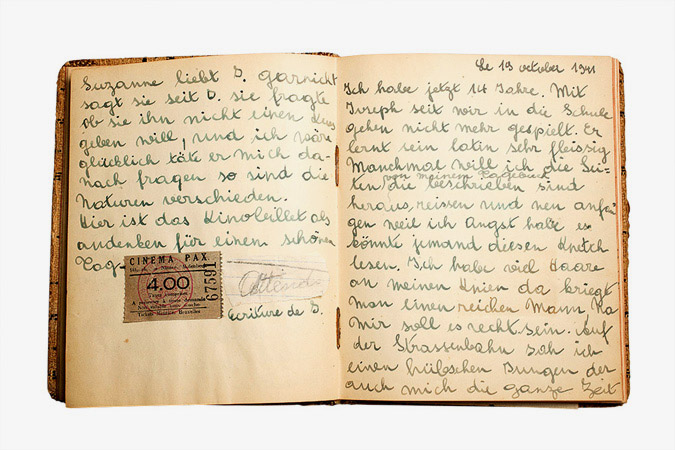 Suzanne liebt D. garnicht
sagt sie seit D. sie fragte
ob sie ihn nicht einen Kuss
geben will, und ich wäre
glücklich täte er mich da-
nach fragen so sind die
Naturen verschieden.
Hier ist das Kinobillet als
andenken für einem schönen
Tag-
CINEMA PAX.
4.00
67591
Attends
Ecriture de D.
Le 19 october 1941
Ich habe jetzt 14 Jahre. Mit
Joseph seit wir in die Schule
gehen nicht mehr gespielt. Er
lernt sein latin sehr fleissig
Manchmal will ich die Sei=
von meinem Tagebuch
ten, die beschrieben sind
heraus, reissen und neu anfan
gen weil ich Angst habe es
könnte jemand diesen Knetch
lesen. Ich habe viel Haare
an meinen Knien da kriegt
man einen reichen Mann Na
mir soll es recht sein. Auf
der Strassenbahn sah ich
einen hübschen Jungen der
auch mich die ganze Zeit